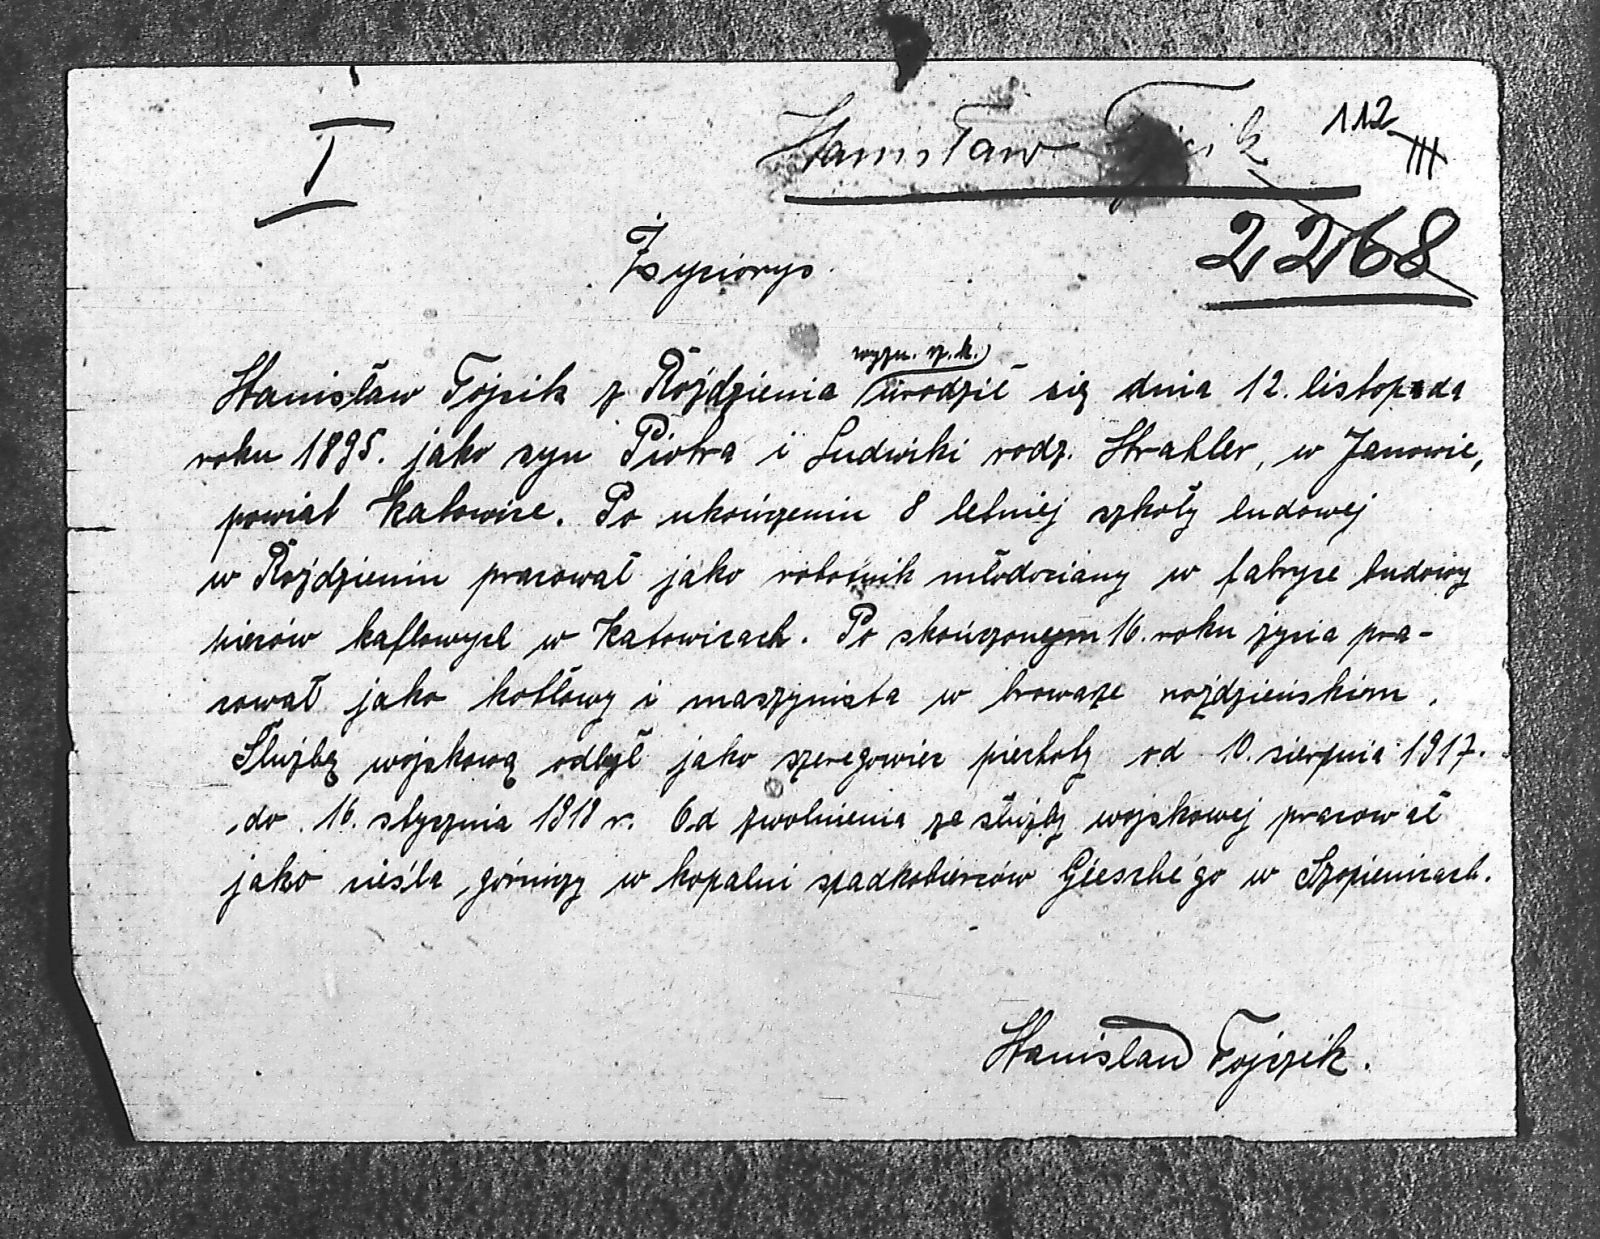 I
Stanisław
112
III
2268
Życiorys.
wyzn. rz. k.
Stanisław Tojcik z Roździenia urodził się dnia 12. listopada
roku 1895. jako syn Piotra i Ludwiki rodz. Strahler, w Janowie,
powiat Katowice. Po ukończeniu 8 letniej szkoły ludowej
w Roździeniu pracował jako robotnik młodociany w fabryce budowy
pieców kaflowych w Katowicach. Po skończonym 16. roku życia pra-
cował jako kotłowy i maszynista w browarze roździeńskim.
Służbę wojskową odbył jako szeregowiec piechoty od 10. sierpnia 1917.
do 16. stycznia 1919 r. Od zwolnienia ze służby wojskowej pracował
jako cieśla górniczy w kopalni spadkobierców Gieschégo w Szopienicach.
Stanisław Tojczik.